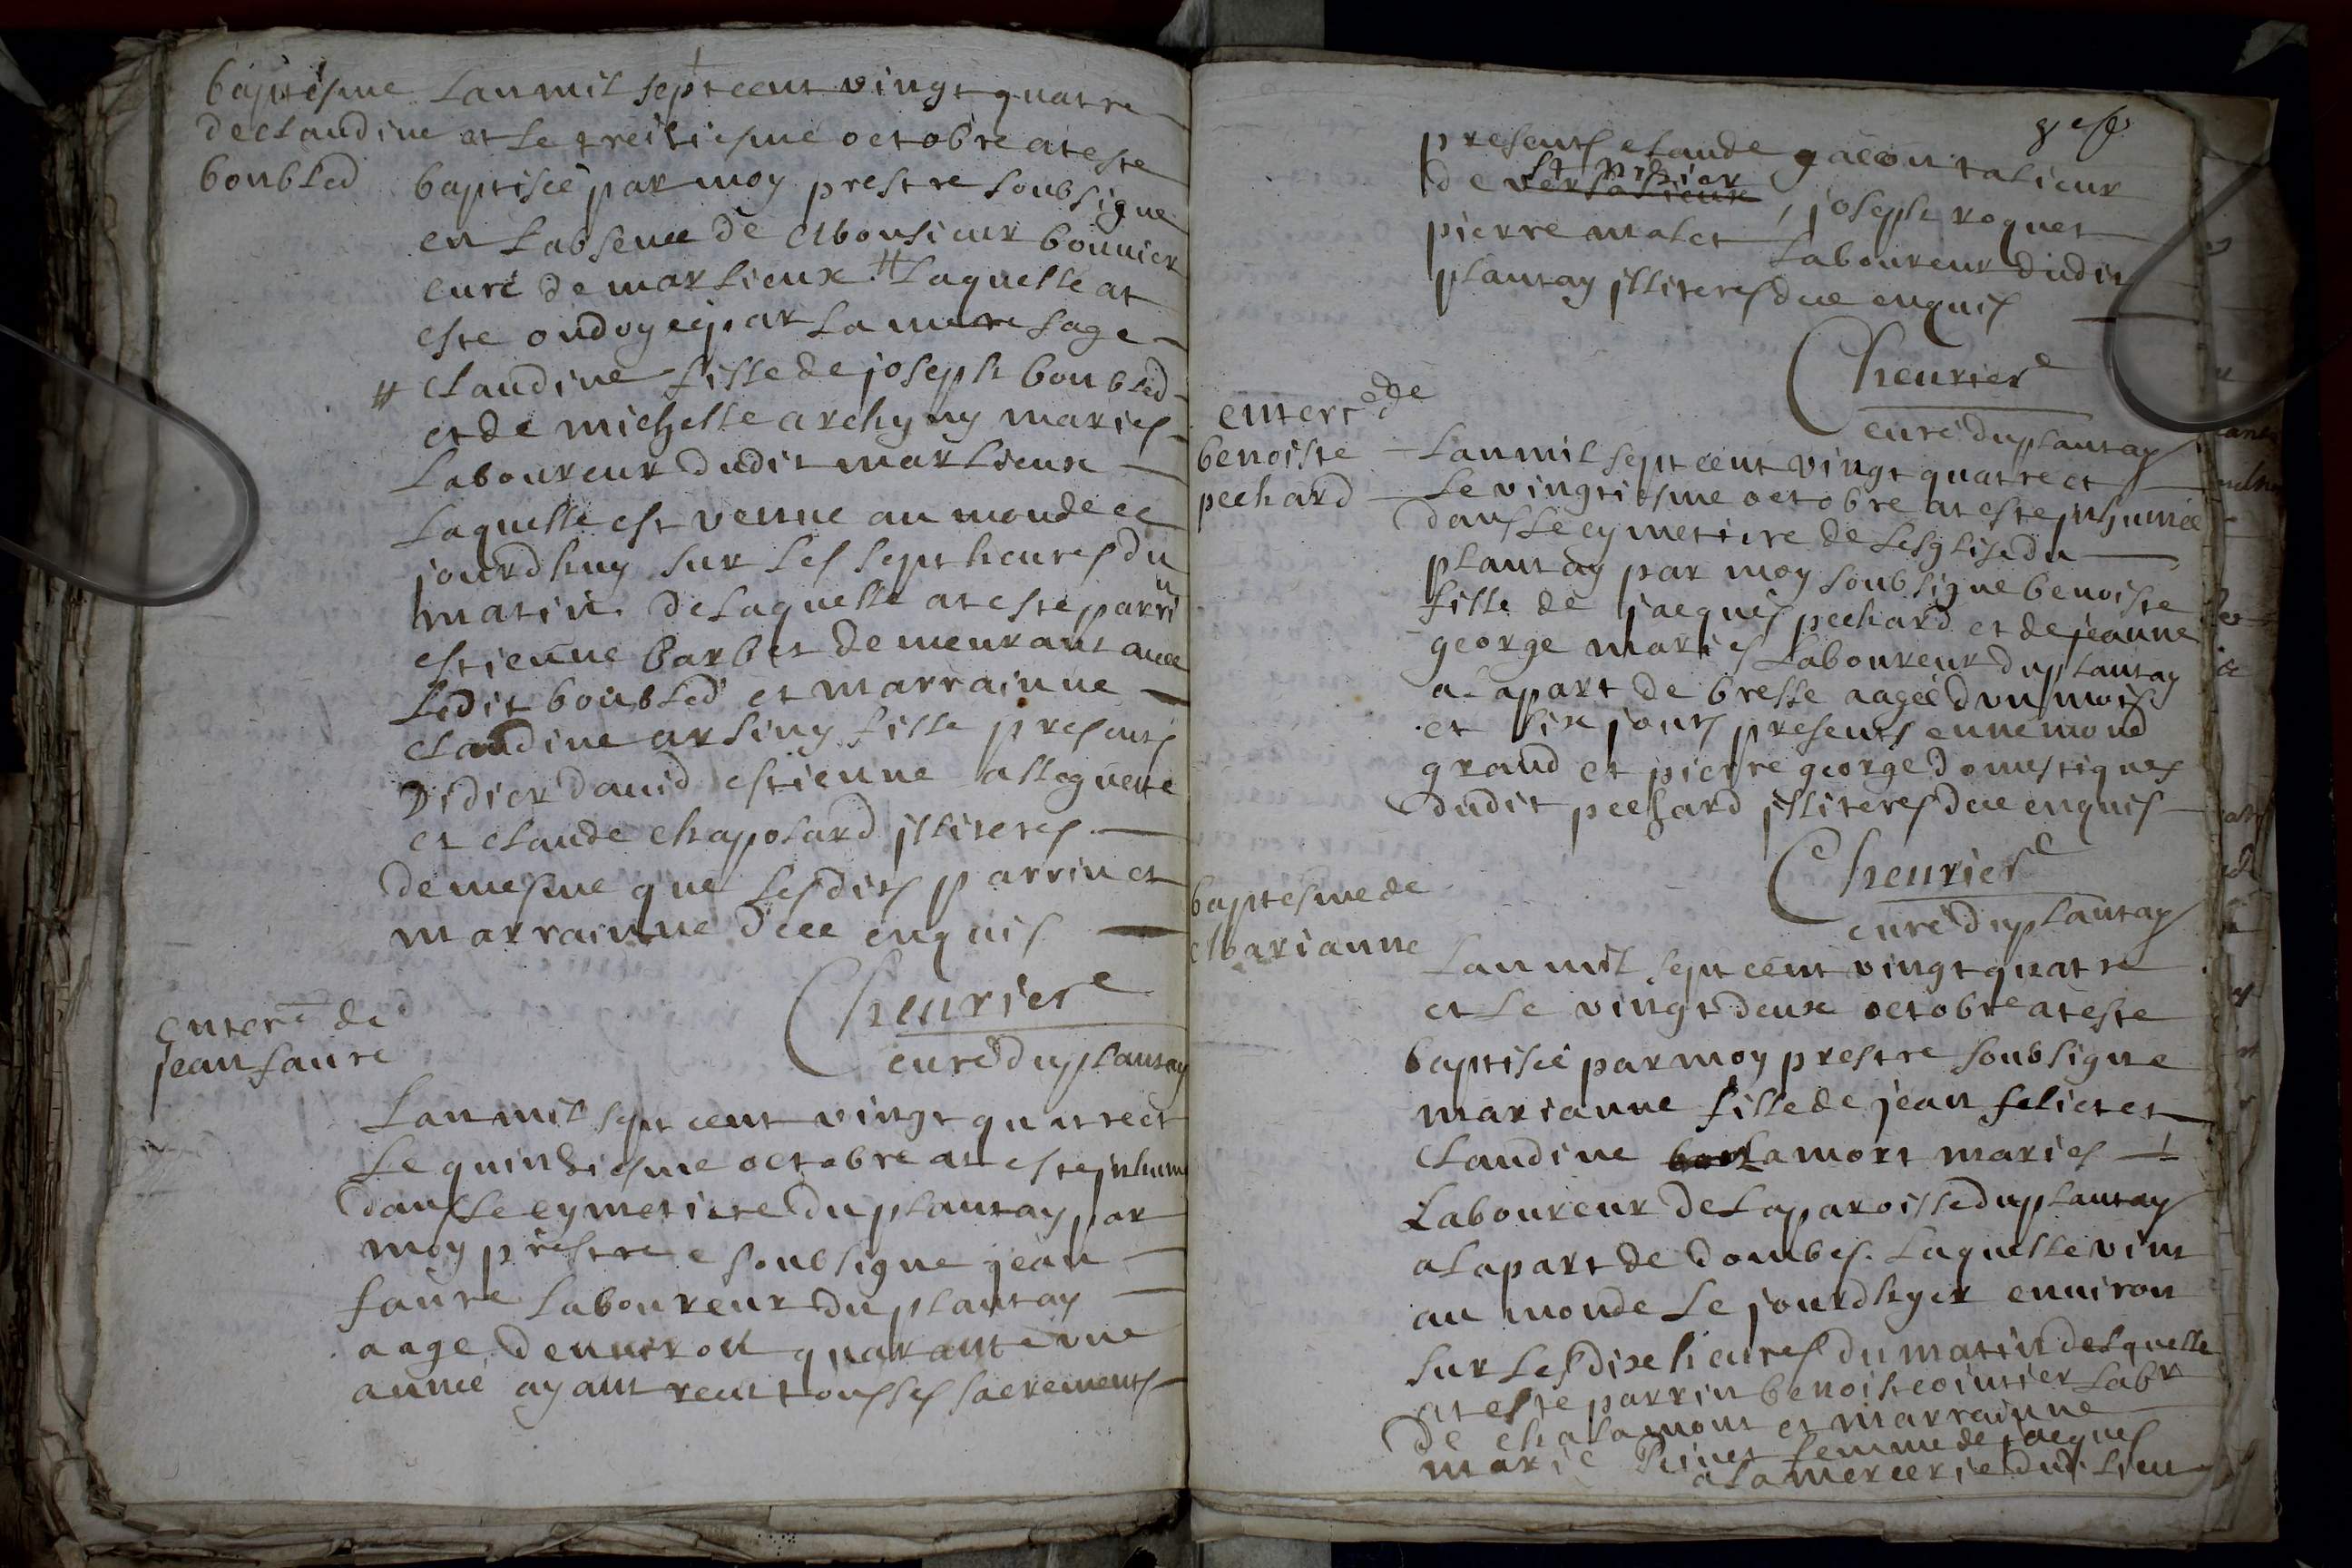 baptésme
de claudine
boubled
Lan mil sept cent vingt quatre
et le treiziesme octobre at este
baptisée par moy prestre soubsigne
en l'absence de Monsieur bonnier
curé de marlieux # laquelle at
este ondoyeé par la mere sage
# claudine fille de joseph boubled
et de michelle archyny mariés
laboureur dudit marlieux
laquelle est venue au monde ce
jourdhuy sur les sept heures du
matin. de laquelle at este parrin
estienne barbet demeurant avec
ledit boubled et marrainne
claudine arsiny fille presents
Didier david estienne alloguette
et claude chapolard jlliterés
demesme que lesdits parrin et
marrainne d'ece enquis
Cheurier
curé du plantay
enterrt de
jean faure
Lan mil sept cent vingt quatre et
le quinziesme octobre at este jnhum
dans le cymetiere du plantay par
moy prestre soubsigne jean
faure laboureur du plantay
aage denuiron quarante une
année ayant receu tous ses sacrements
presents claude gacon talieur
de versalieux st nisier, joseph roquet
pierre malet laboureur dudit
plantay jlliterés dece enquis
Cheurier
curé du plantay
enterrt de
benoiste
pechard
Lan mil sept cent vingt quatre et
le vingtiesme octobre at este jnhumée
dans le cymetiere de lesglise du
plantay par moy soubsigne benoiste
fille de jacques pechard et de jeanne
george mariés laboureur du plantay
a la part de bresse aageé dun mois
et six jours presents ennemond
grand et pierre george domestiques
dudit pechard jlliterés dece enquis
Cheurier
curé du plantay
baptesme de
Marianne
Lan mil sept cent vingt quatre
et le vingt deux octobre at este
baptiseé par moy prestre soubsigne
marianne fille de jean feliet et
claudine lamort mariés
laboureur de la paroisse du plantay
a la part de dombes. laquelle vint
au monde le jourdhyer enuiron
sur les dix heures du matin de lquelle
at este parrin benoist cointier labr
de chalamont et marrainne
marie Piinet femme de jacques
a la mercerie dud. lieu